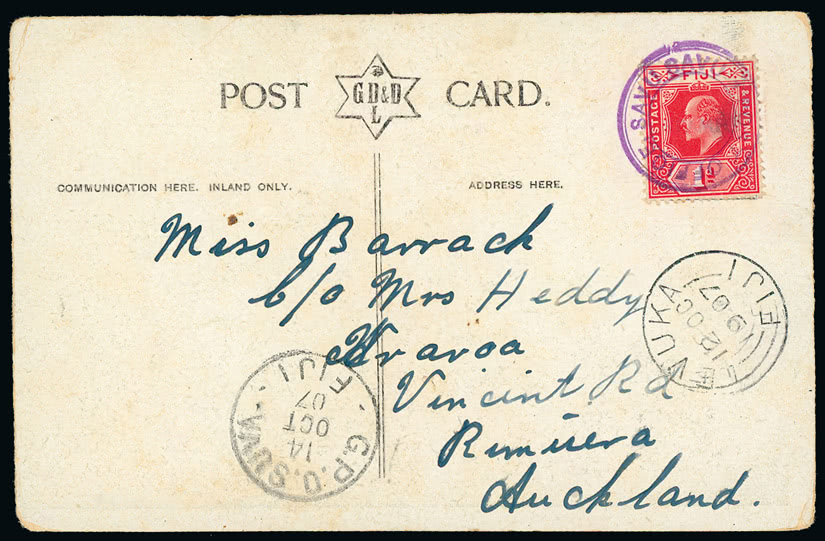 POST CARD.
G D&D
L
COMMUNICATION HERE. INLAND ONLY.
ADDRESS HERE.
FIJI
POSTAGE
& REVENUE
1d
SAVU SAVU
FIJI
Miss Barrack
c/o Mrs Heddy
Vincint Rd
Rimuera
Auckland.
LEVUKA
12 OC
1907
FIJI
G.P.O. SUVA
14
OCT
07
FIJI